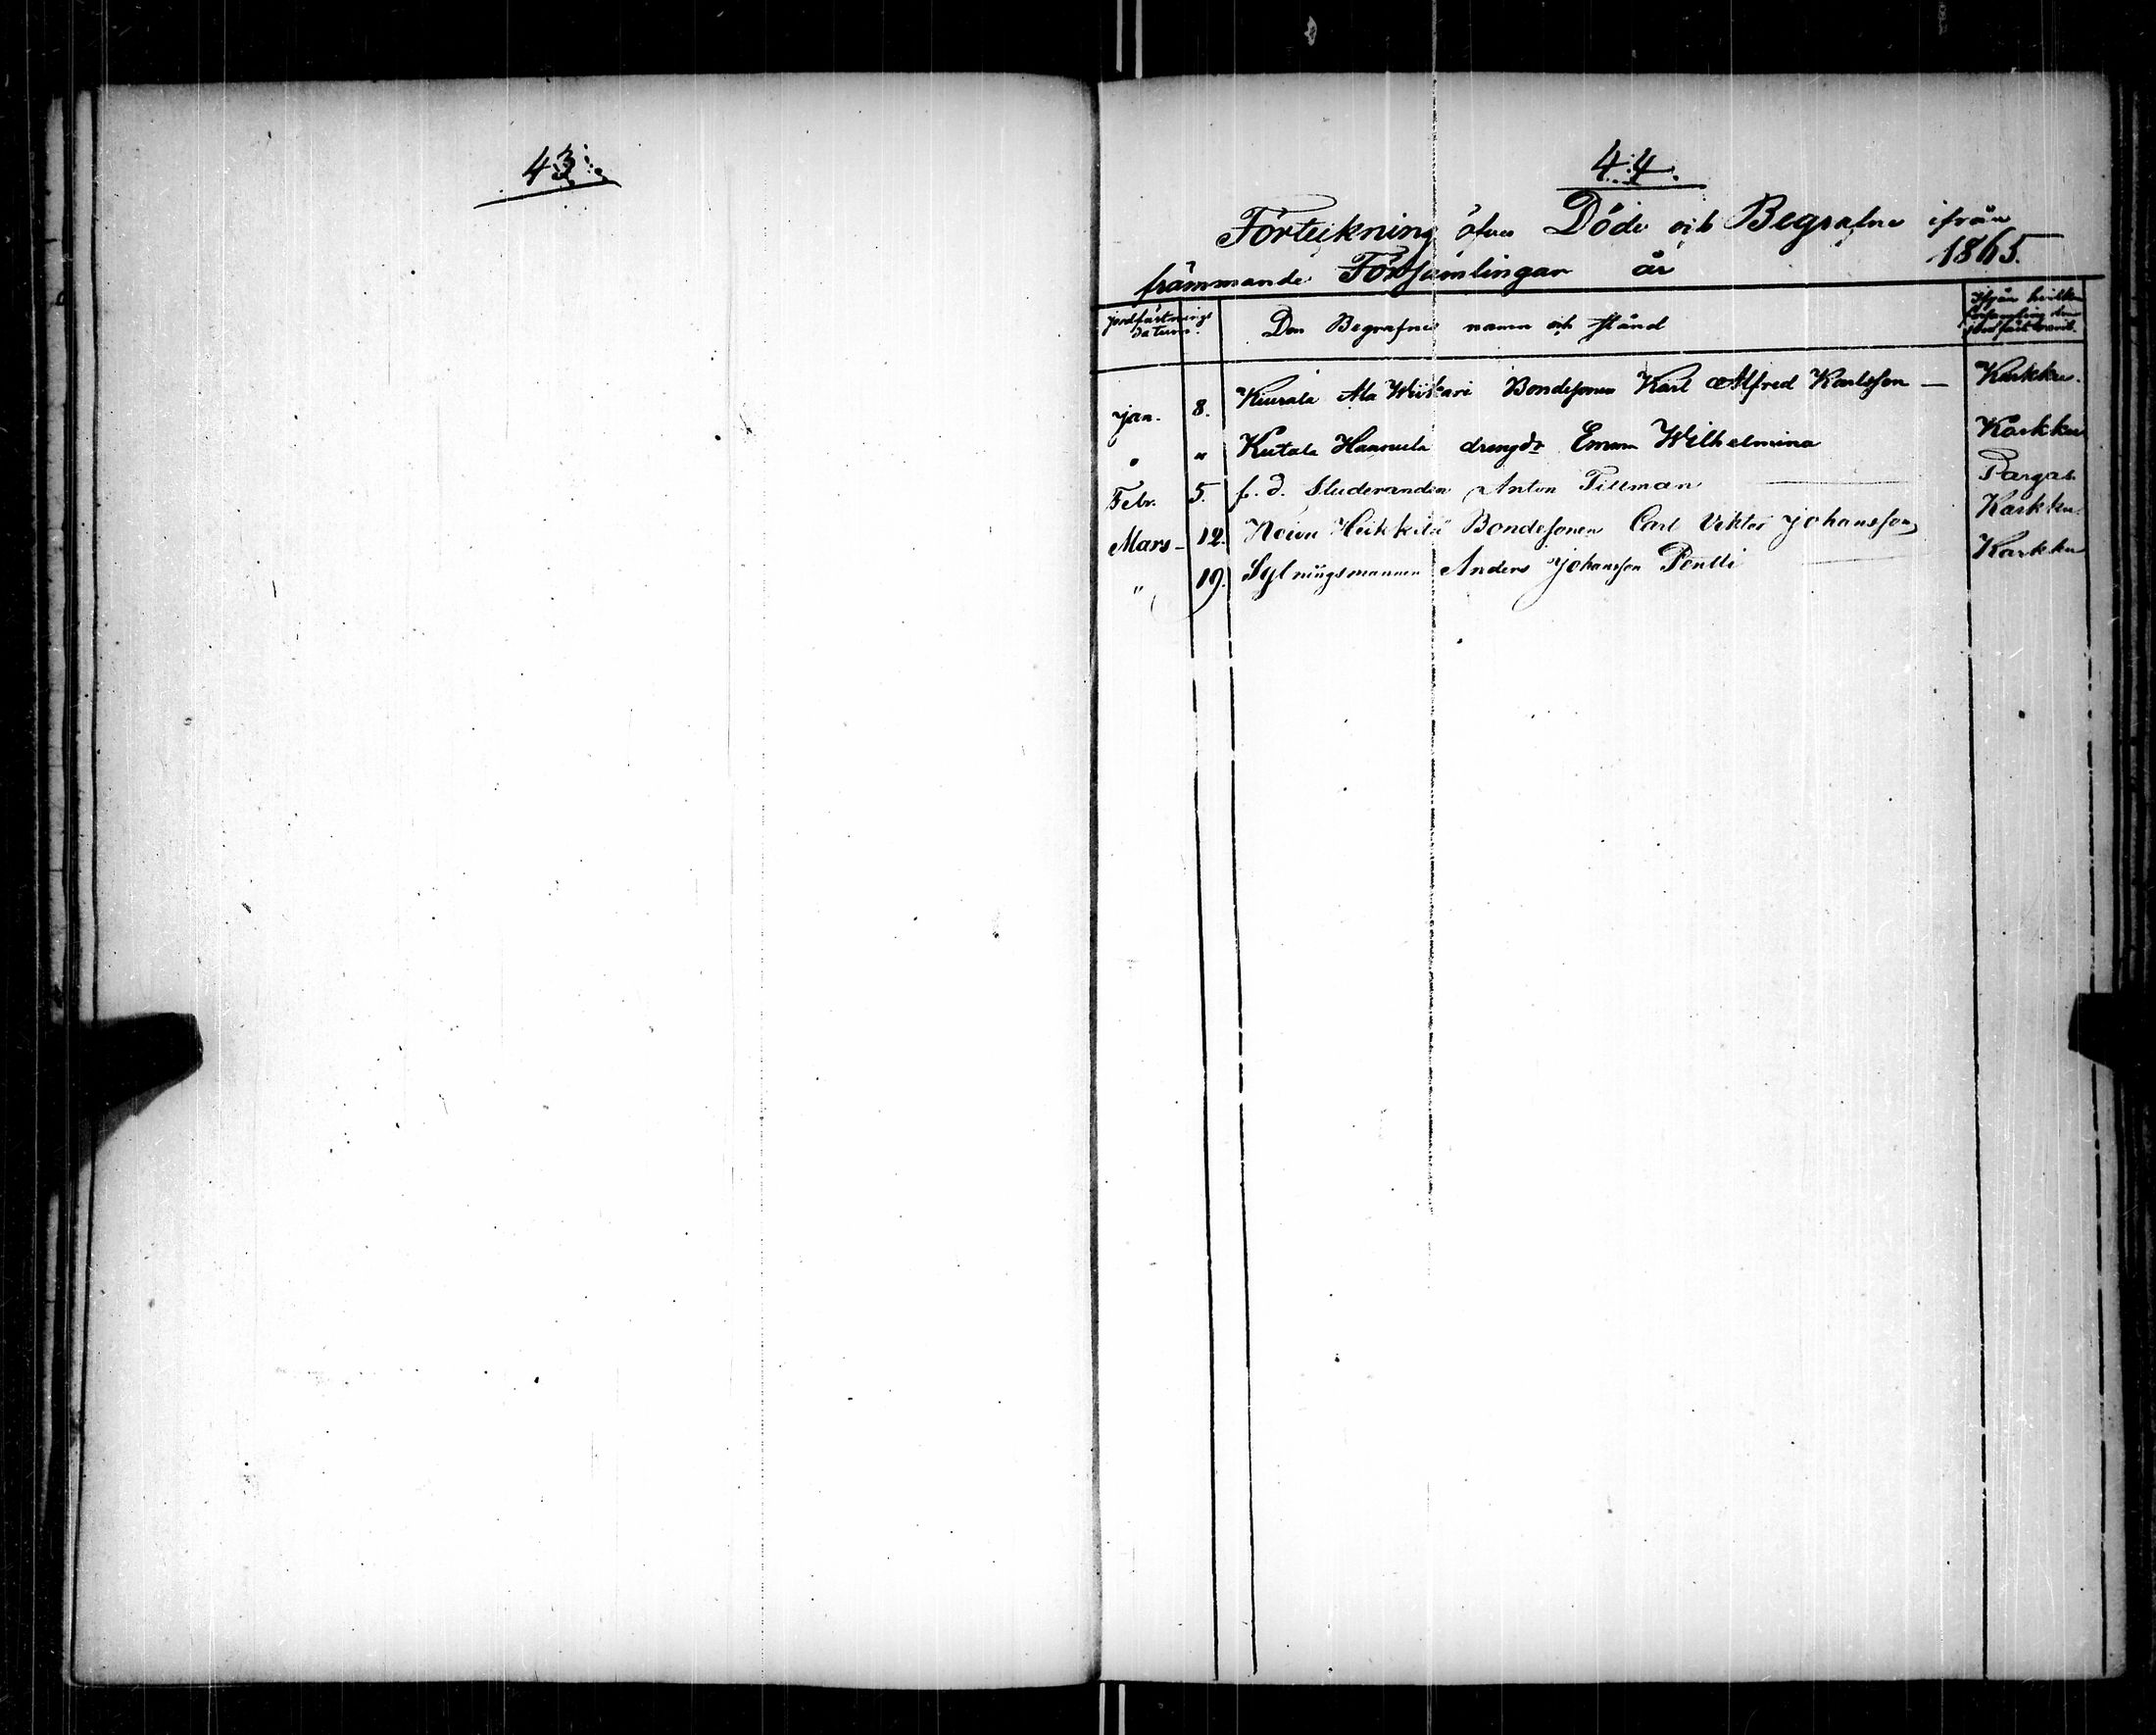 43.
44.
Förteckning öfver Döde och Begrafne ifrån
främmande Församlingar år 1865.
Jordfästnings datum. Den Begrafnes namn och stånd Ifrån hvilken församling den
Jan. 8. Kiurala Ala Wiikari Bondesonen Karl Alfred Karlsson — Karkku.
" " Kutala Haanula drengdr Emma Wilhelmina Karkku
Febr. 5. f. d. Studeranden Anton Tillman Pargas.
Mars 12. Heikkilä Bondesonen Carl Viktor Johansson Karkku
" 19. Sytningsmannen Anders Johansson Pentti Karkku